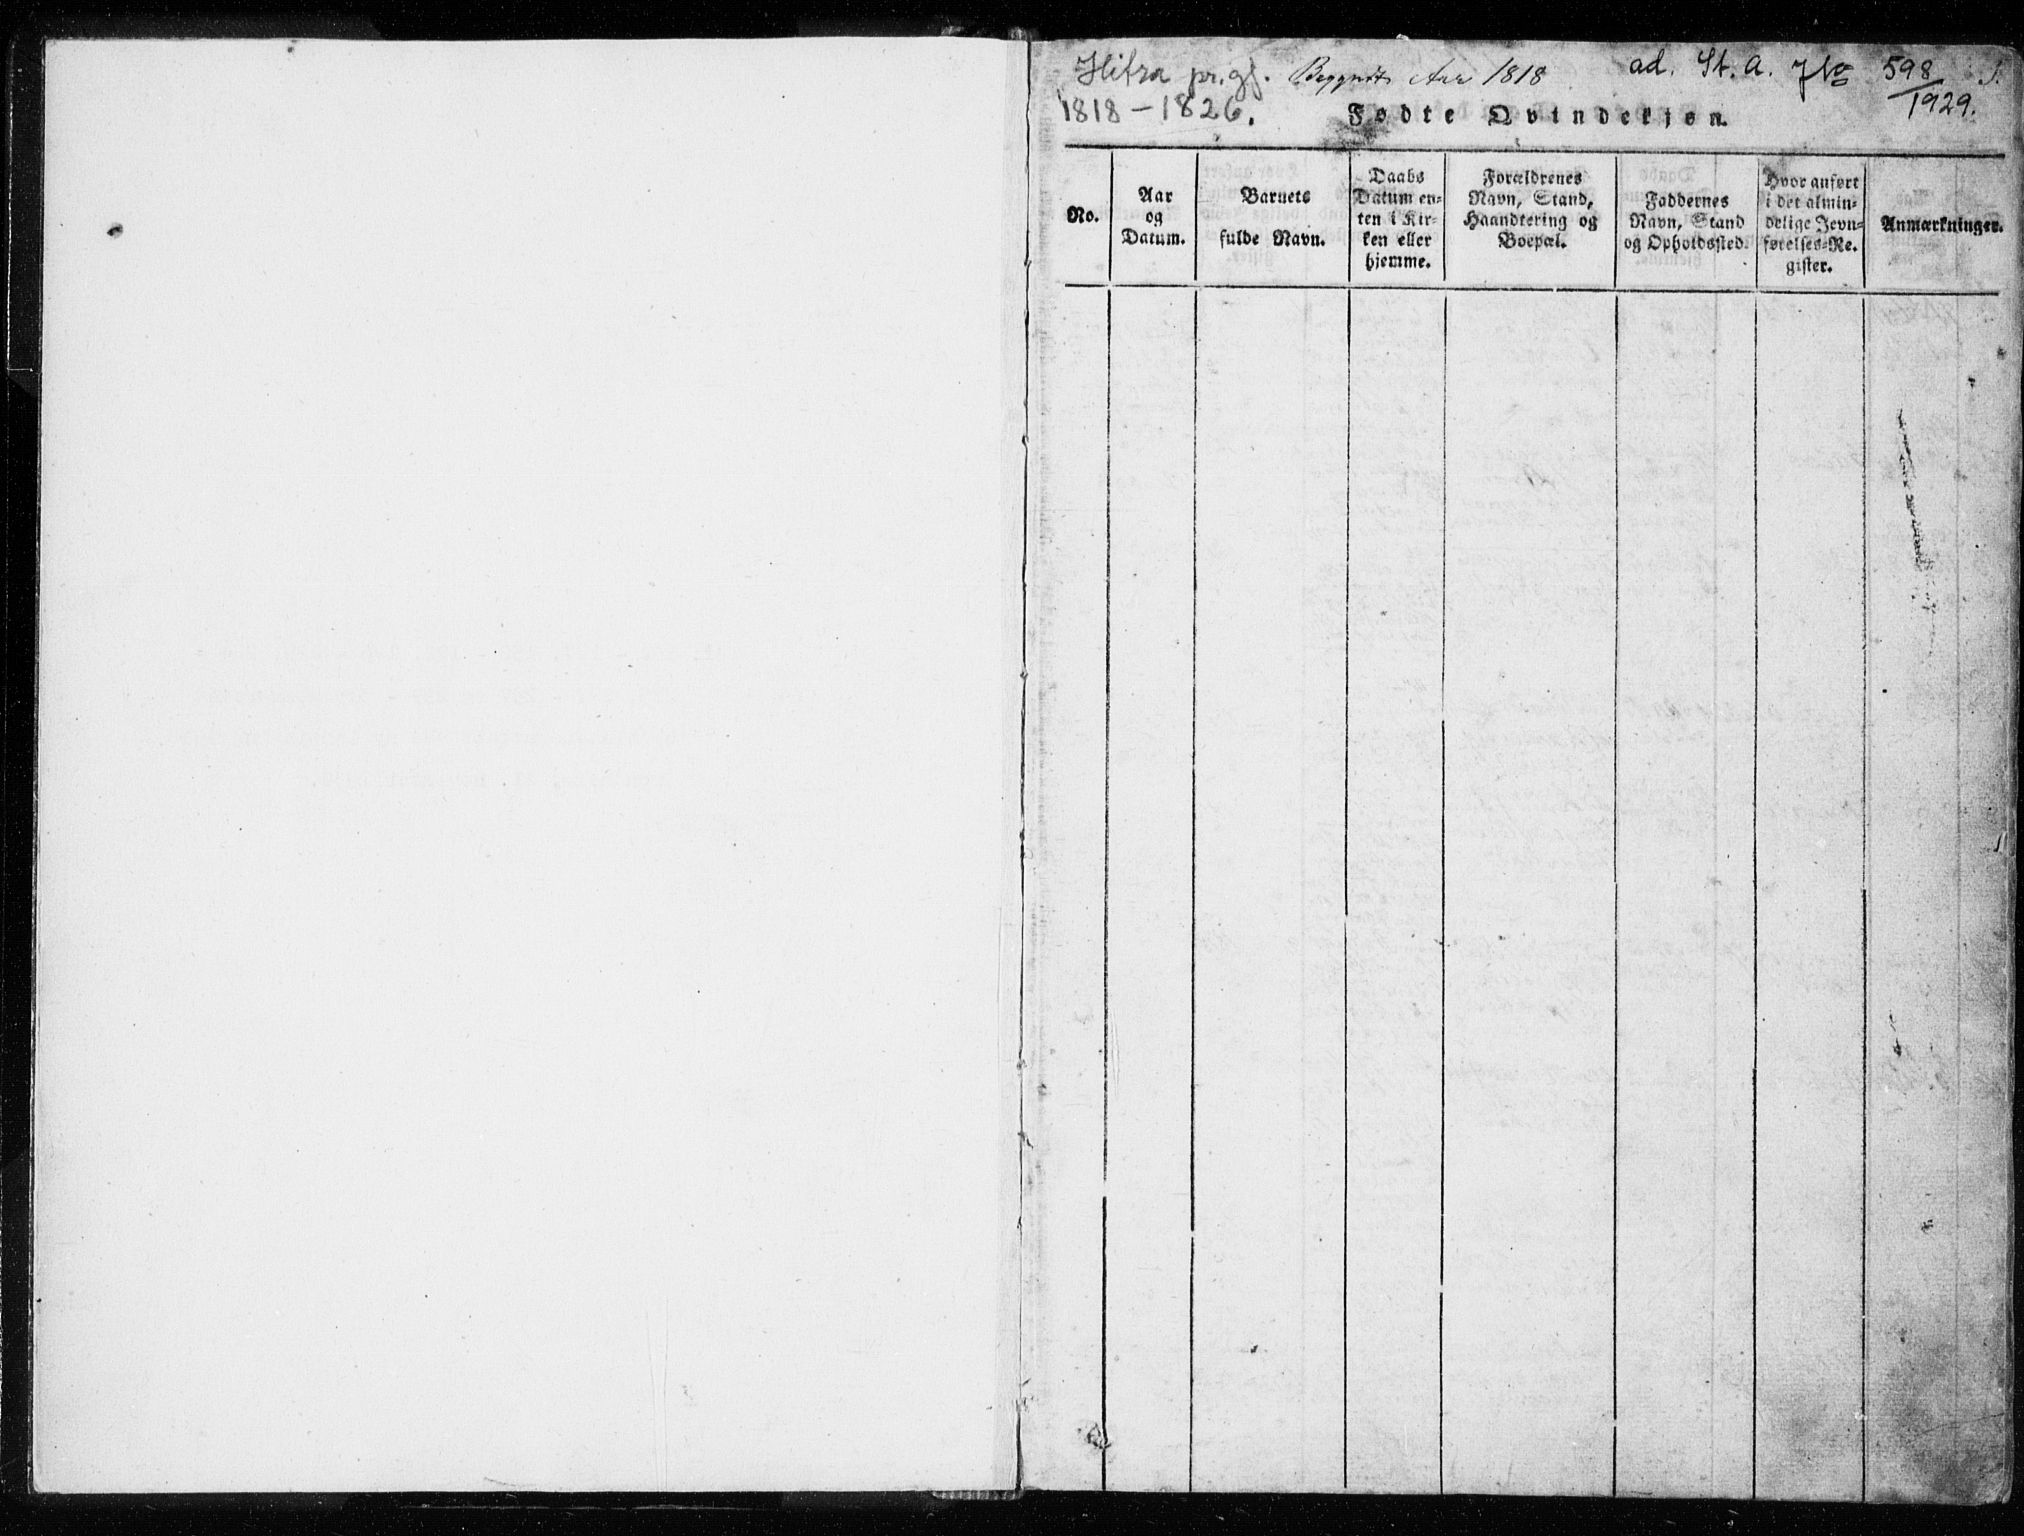 Hitra pr.gj. Begyndt Aar 1818 ad. St. A. J No 598/1929. 1.
1818-1826.
Fødte Qvindekjøn.
No.
Aar
og
Datum.
Barnets
fulde Navn.
Daabs
Datum en-
ten i Kir-
ken eller
hjemme.
Forældrenes
Navn, Stand,
Haandtering og
Boepæl.
Faddernes
Navn, Stand
og Opholdssted.
Hvor anført
i det almin-
delige Jevn-
førelses-Re-
gister.
Anmærkninger.